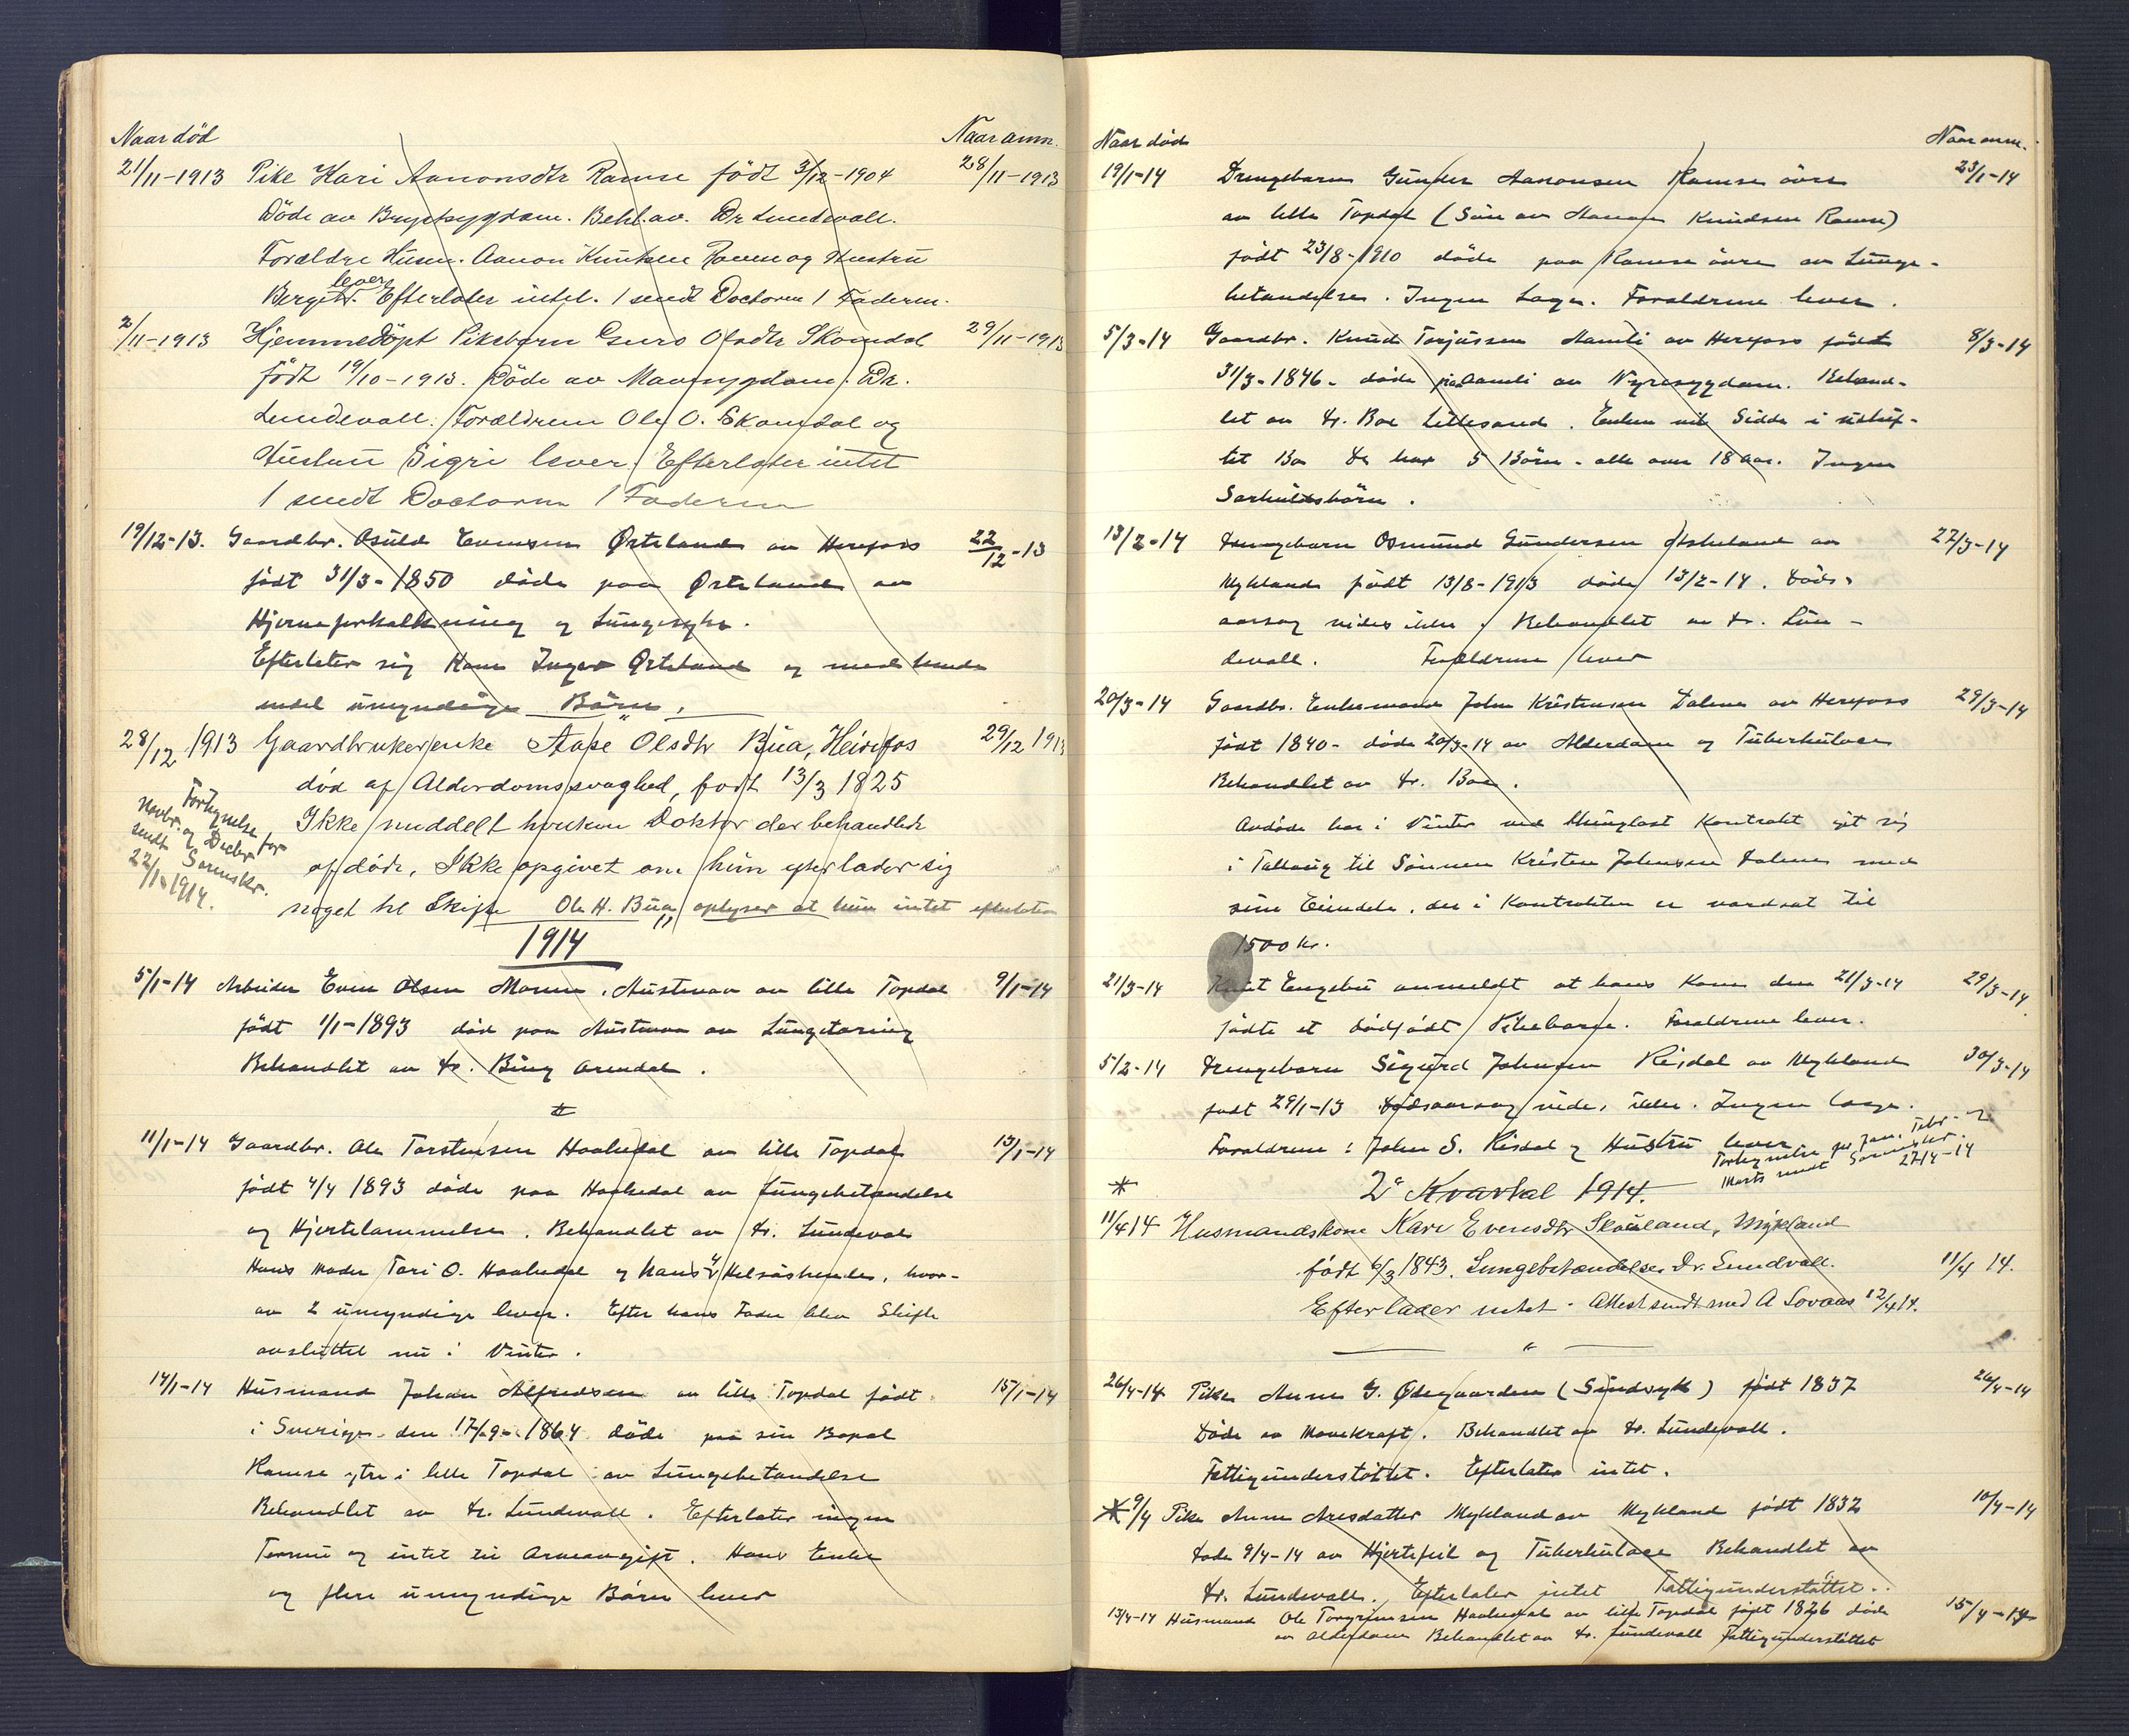 Naar död Naar anm.
21/11-1913 Pike Kari Aanonsdtr Ramse födt 3/12-1904 28/11-1913
Döde av Brystsygdom. Behl. av. Dr Lundevall.
Forældre Husm. Aanon Knutsen Ramse og Hustru
lever
Bergit. Efterlater intet. 1 sendt Doctoren 1 Faderen.
2/11-1913 Hjemmedöpt Pikebarn Guro Olsdtr Skomdal 29/11-1913
födt 19/10-1913. Döde av Mavesygdom. Dr.
Lundevall. Forældrene Ole O. Skomdal og
Hustru Sigri lever. Efterlater intet
1 sendt Doctoren 1 Faderen
19/12-13. Gaardbr. Osuld Evensen Örteland av Herefoss 22/12-13
födt 31/3-1850 döde paa Örteland av
Hjerneforkalkning og Lungesyke.
Efterlater sig Kone Inger Örteland og med hende
endel umyndige Börn.
28/12 1913 Gaardbrukerenke Aase Olsdtr Bua, Heirefos 29/12 1913
död af Alderdomssvaghed, født 13/3 1825
Ikke meddelt hvilken Doktor der behandlede
afdöde, Ikke opgivet om hun efterlader sig
noget til Skifte Ole H. Bua oplyser at hun intet efterlater
Fortegnelse for
Novbr. og Decbr
sendt Sorenskr.
22/1 1914.
1914
5/1-14 Arbeider Even Olsen Moren, Austenaa av lille Topdal 9/1-14
födt 1/1-1893 död paa Austenaa av Lungetæring
Behandlet av Dr. Bing Arendal.
11/1-14 Gaardbr. Ole Torstensen Haakedal av lille Topdal 13/1-14
födt 4/4 1893 döde paa Haakedal av Lungebetændelse
og Hjertelammelse. Behandlet av Dr. Lundevall
Hans Moder Tori O. Haakedal og hans 4 Helsöskende, hvor-
av 2 umyndige lever. Efter hans Fader blev Skifte
avsluttet nu i Vinter.
14/1-14 Husmand Johan Alfredsen av lille Topdal födt 15/1-14
i Sverige den 17/9-1864 döde paa sin Bopæl
Ramse ytre i lille Topdal av Lungebetændelse
Behandlet av Dr. Lundevall. Efterlater ingen
Formue og intet til Arveavgift. Hans Enke
og flere umyndige Börn lever
Naar död Naar anm.
19/1-14 Drengebarn Gunder Aanonsen Ramse övre 23/1-14
av lille Topdal (Sön av Aanon Knudsen Ramse)
födt 23/8-1910 döde paa Ramse övre av Lunge-
betændelse. Ingen Læge. Forældrene lever.
5/3-14 Gaardbr. Knud Torjussen Hamli av Herefoss födt 8/3-14
31/3-1846. döde paa Hamli av Nyresygdom. Behand-
let av Dr. Boe Lillesand. Enken vil Sidde i uskif-
tet Bo Der har 5 Börn - alle over 18 aar. Ingen
Særkuldsbörn.
13/2-14 Drengebarn Osmund Gundersen Eskeland av 27/3-14
Mykland födt 13/8-1913 döde 13/2-14. Döds-
aarsag vides ikke. Behandlet av Dr. Lun-
devall. Forældrene lever
20/3-14 Gaardbr. Enkemand John Kristensen Dalene av Herefoss 29/3-14
födt 1840- döde 20/3-14 av Alderdom og Tuberkulose
Behandlet av Dr. Boe.
Avdöde har i Vinter ved thinglæst Kontrakt git sig
i Tallaug til Sönnen Kristen Johnsen Dalene med
sine Eiendele, der i Kontrakten er værdsat til
1500 kr.
21/3-14 Knut Engebu anmeldt at hans Kone den 21/3-14 29/3-14
födte et dödfödt Pikebarn. Forældrene lever.
5/2-14 Drengebarn Sigurd Johnsen Risdal av Mykland 30/3-14
födt 29/1-13 Dödsaarsag vides ikke. Ingen Læge.
Forældrene: John S. Risdal og Hustru lever
Fortegnelse for Jan. Febr. og
Marts sendt Sorenskr. 27/4-14
2<sup>det</sup> Kvartal 1914.
11/4 14 Husmandskone Kari Evensdtr Skaaland, Mykland
födt 6/3 1843. Lungebetændelse. Dr. Lundvall. 11/4 14.
Efterlader intet. Attest sendt med A Sovaas 12/4 14.
26/4-14 Pike Anne G. Ödegaarden (Sindsyk) födt 1837 26/4-14
Döde av Mavekræft. Behandlet av Dr. Lundevall.
Fattigunderstöttet. Efterlater intet.
9/4 Pike Anne Aresdatter Mykland av Mykland födt 1832 10/4-14
Döde 9/4-14 av Hjertefeil og Tuberkulose Behandlet av
Dr. Lundevall. Efterlater intet Fattigunderstöttet.
13/4-14 Husmand Ole Torgrimsen Haakedal av lille Topdal födt 1826 döde 15/4-14
av Alderdom Behandlet av Dr. Lundevall Fattigunderstöttet